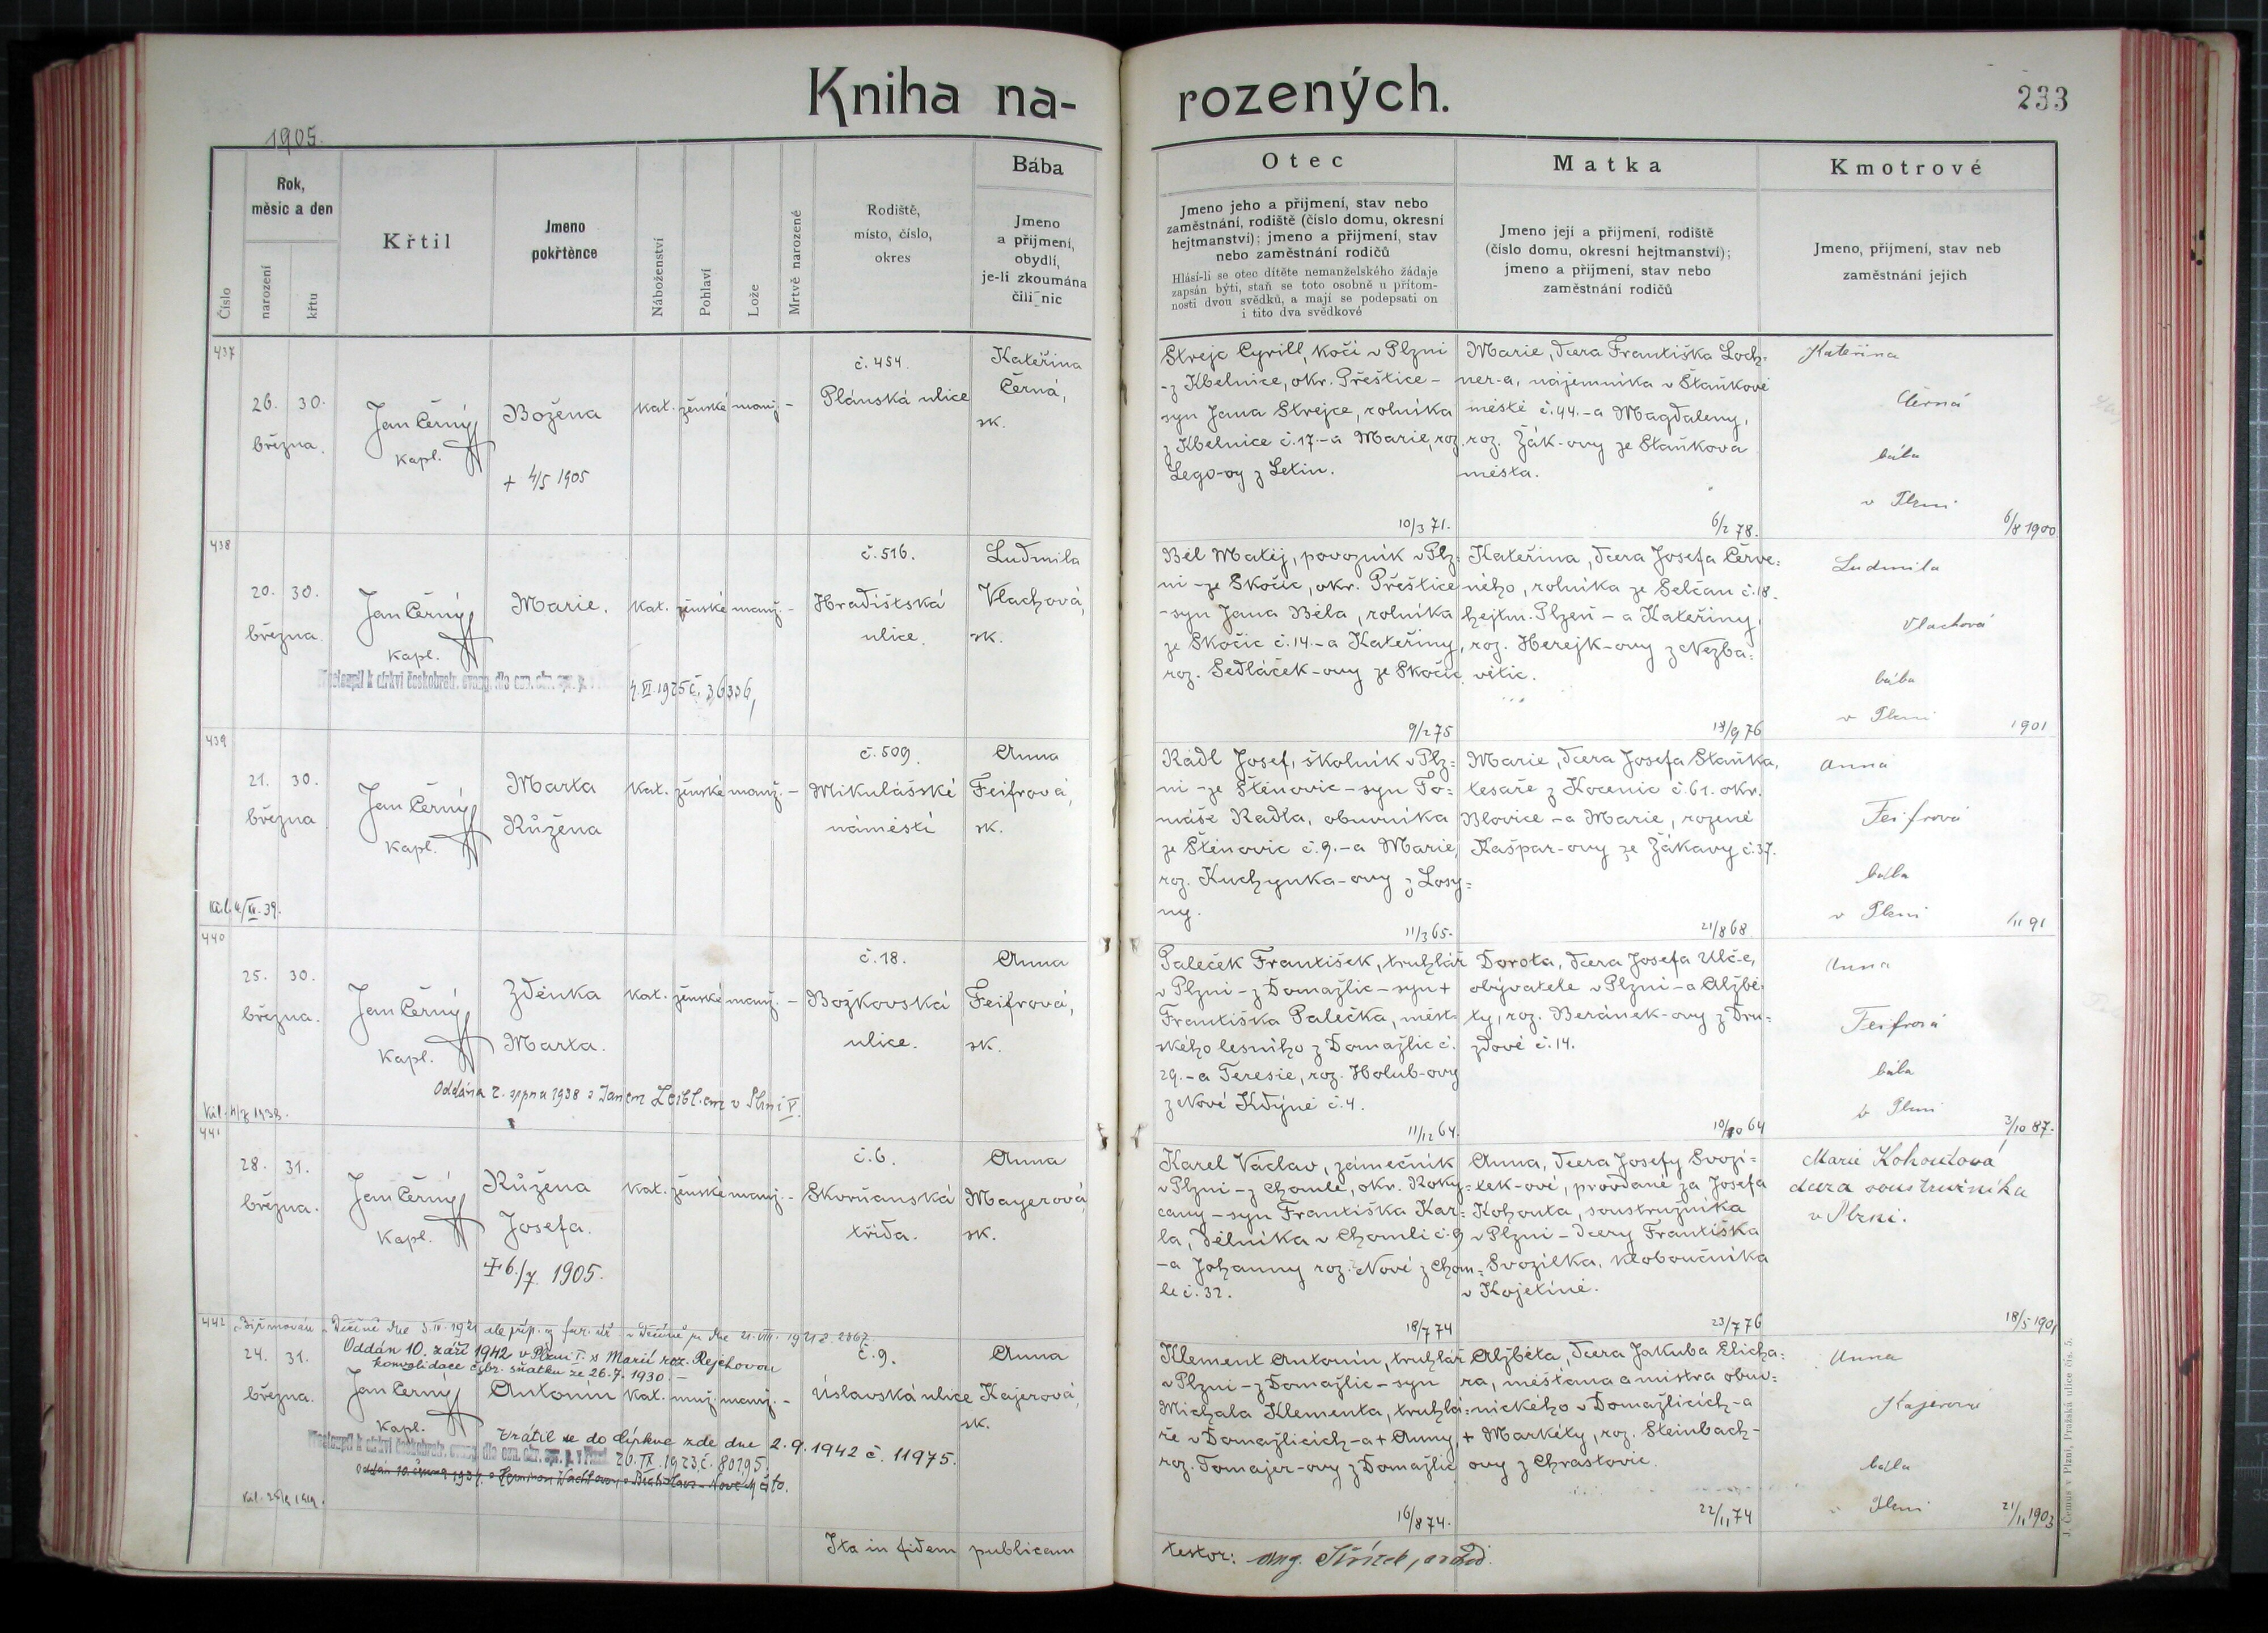 Kniha na-
rozených.
233
1905.
Číslo
Rok,
měsíc a den
narození
křtu
Křtil
Jmeno
pokřtěnce
Náboženství
Pohlaví
Lože
Mrtvě narozené
Rodiště,
místo, číslo,
okres
Bába
Jmeno
a příjmení,
obydlí,
je-li zkoumána
čili nic
Otec
Jmeno jeho a příjmení, stav nebo
zaměstnání, rodiště (číslo domu, okresní
hejtmanství); jmeno a příjmení, stav
nebo zaměstnání rodičů
Hlásí-li se otec dítěte nemanželského žádaje
zapsán býti, staň se toto osobně u přítom-
nosti dvou svědků, a mají se podepsati on
i tito dva svědkové
Matka
Jmeno její a příjmení, rodiště
(číslo domu, okresní hejtmanství);
jmeno a příjmení, stav nebo
zaměstnání rodičů
Kmotrové
Jmeno, příjmení, stav neb
zaměstnání jejich
437
26. 30.
března.
Jan Černý
kapl.
Božena
+ 4/5 1905
kat. ženské manž. -
č. 454.
Plánská ulice
Kateřina
Černá,
zk.
Strejc Cyrill, kočí v Plzni
- z Kbelnice, okr. Přeštice -
syn Jana Strejce, rolníka
z Kbelnice č. 17. - a Marie, roz.
Lego-vy z Letin.
10/3 71.
Marie, dcera Františka Loch-
ner-a, nájemníka v Staňkově
městě č. 44. - a Magdaleny,
roz. Žák-ovy ze Staňkova
města.
6/2 78.
Kateřina
Černá
bába
v Plzni
6/8 1900
438
20. 30.
března.
Jan Černý
kapl.
Marie.
kat. ženské manž. -
4. VI. 1925 č. 36336,
č. 516.
Hradištská
ulice.
Ludmila
Vlachová,
zk.
Běl Matěj, povozník v Plz-
ni - ze Skočic, okr. Přeštice
- syn Jana Běla, rolníka
ze Skočic č. 14. - a Kateřiny,
roz. Sedláček-ovy ze Skočic.
9/2 75
Kateřina, dcera Josefa Červe-
ného, rolníka ze Selčan č. 18.
hejtm. Plzeň - a Kateřiny,
roz. Herejk-ovy z Nezba-
větic.
18/9 76
Ludmila
Vlachová
bába
v Plzni
1901
439
21. 30.
března
Jan Černý
kapl.
Marta
Růžena
kat. ženské manž. -
č. 509.
Mikulášské
náměstí
Anna
Feifrová,
zk.
Rádl Josef, školník v Plz-
ni - ze Štěnovic - syn To-
máše Rádla, obuvníka
ze Štěnovic č. 9. - a Marie,
roz. Kuchynka-ovy z Losy-
ny.
11/3 65.
Marie, dcera Josefa Staňka,
tesaře z Kocenic č. 61. okr.
Blovice - a Marie, rozené
Kašpar-ovy ze Žákavy č. 37.
21/8 68.
Anna
Feifrová
bába
v Plzni
/11 91
440
25. 30.
března.
Jan Černý
kapl.
Zdeňka
Marta.
kat. ženské manž. -
Oddána 2. srpna 1938 s Janem Leibl.em v Plzni V.
č. 18.
Božkovská
ulice.
Anna
Feifrová,
zk.
Paleček František, truhlář
v Plzni - z Domažlic - syn +
Františka Palečka, měst-
ského lesního z Domažlic č.
29. - a Teresie, roz. Holub-ovy
z Nové Kdýně č. 4.
11/12 64.
Dorota, dcera Josefa Ulč-e,
obývatele v Plzni - a Alžbě-
ty, roz. Beránek-ovy z Dru-
zdové č. 14.
10/10 64
Anna
Feifrová
bába
v Plzni
3/10 87.
441
28. 31.
března.
Jan Černý
kapl.
Růžena
Josefa.
+ 6./7 1905.
kat. ženské manž. -
č. 6.
Skvrňanská
třída.
Anna
Mayerová,
zk.
Karel Václav, zámečník
v Plzni - z Chomle, okr. Roky-
cany - syn Františka Kar-
la, dělníka v Chomli č. 9
- a Johanny roz. Nové z Chom-
le č. 32.
18/7 74
Anna, dcera Josefy Svozi-
lek-ové, provdané za Josefa
Kohouta, soustružníka
v Plzni - dcery Františka
Svozilka, kloboučníka
v Kojetíně.
23/7 76
Marie Kohoutová
dcera soustružníka
v Plzni.
18/5 1901
442
Oddán 10. září 1942 v Plzni I. s Marií roz. Rejchovou
konvalidace obč. sňatku ze 26.7.1930.-
24. 31.
března.
Jan Černý
kapl.
Antonín
kat. muž. manž. -
Vrátil se do církve zde dne 2.9.1942 č. 11975.
20. IX. 1923 č. 80195.
č. 9.
Úslavská ulice
Anna
Kajerová,
zk.
Klement Antonín, truhlář
v Plzni - z Domažlic - syn
Michala Klementa, truhlá-
ře v Domažlicích - a + Anny,
roz. Tomajer-ovy z Domažlic
16/8 74.
Alžběta, dcera Jakuba Elicha-
ra, měšťana a mistra obuv-
nického v Domažlicích - a
+ Markéty, roz. Steinbach-
ovy z Chrastovic.
22/11 74
Anna
Kajerová
bába
v Plzni
21/11 1903
Ita in fidem publicam
testor:
J. Čermus v Plzni, Pražská ulice čís. 5.